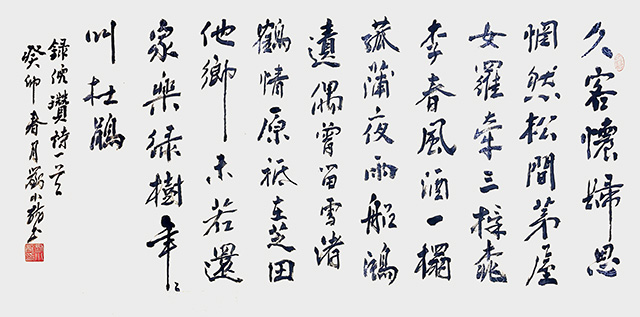 久客懷歸思
惘然松間茅屋
女羅牽三杯桃
李春風酒一榻
菰蒲夜雨船鴻
偶曾留雪渚
鶴情原祇在芝田
他鄉未若還
家樂綠樹年々
叫杜鵑
錄倪瓚詩一首
癸卯春月劉小